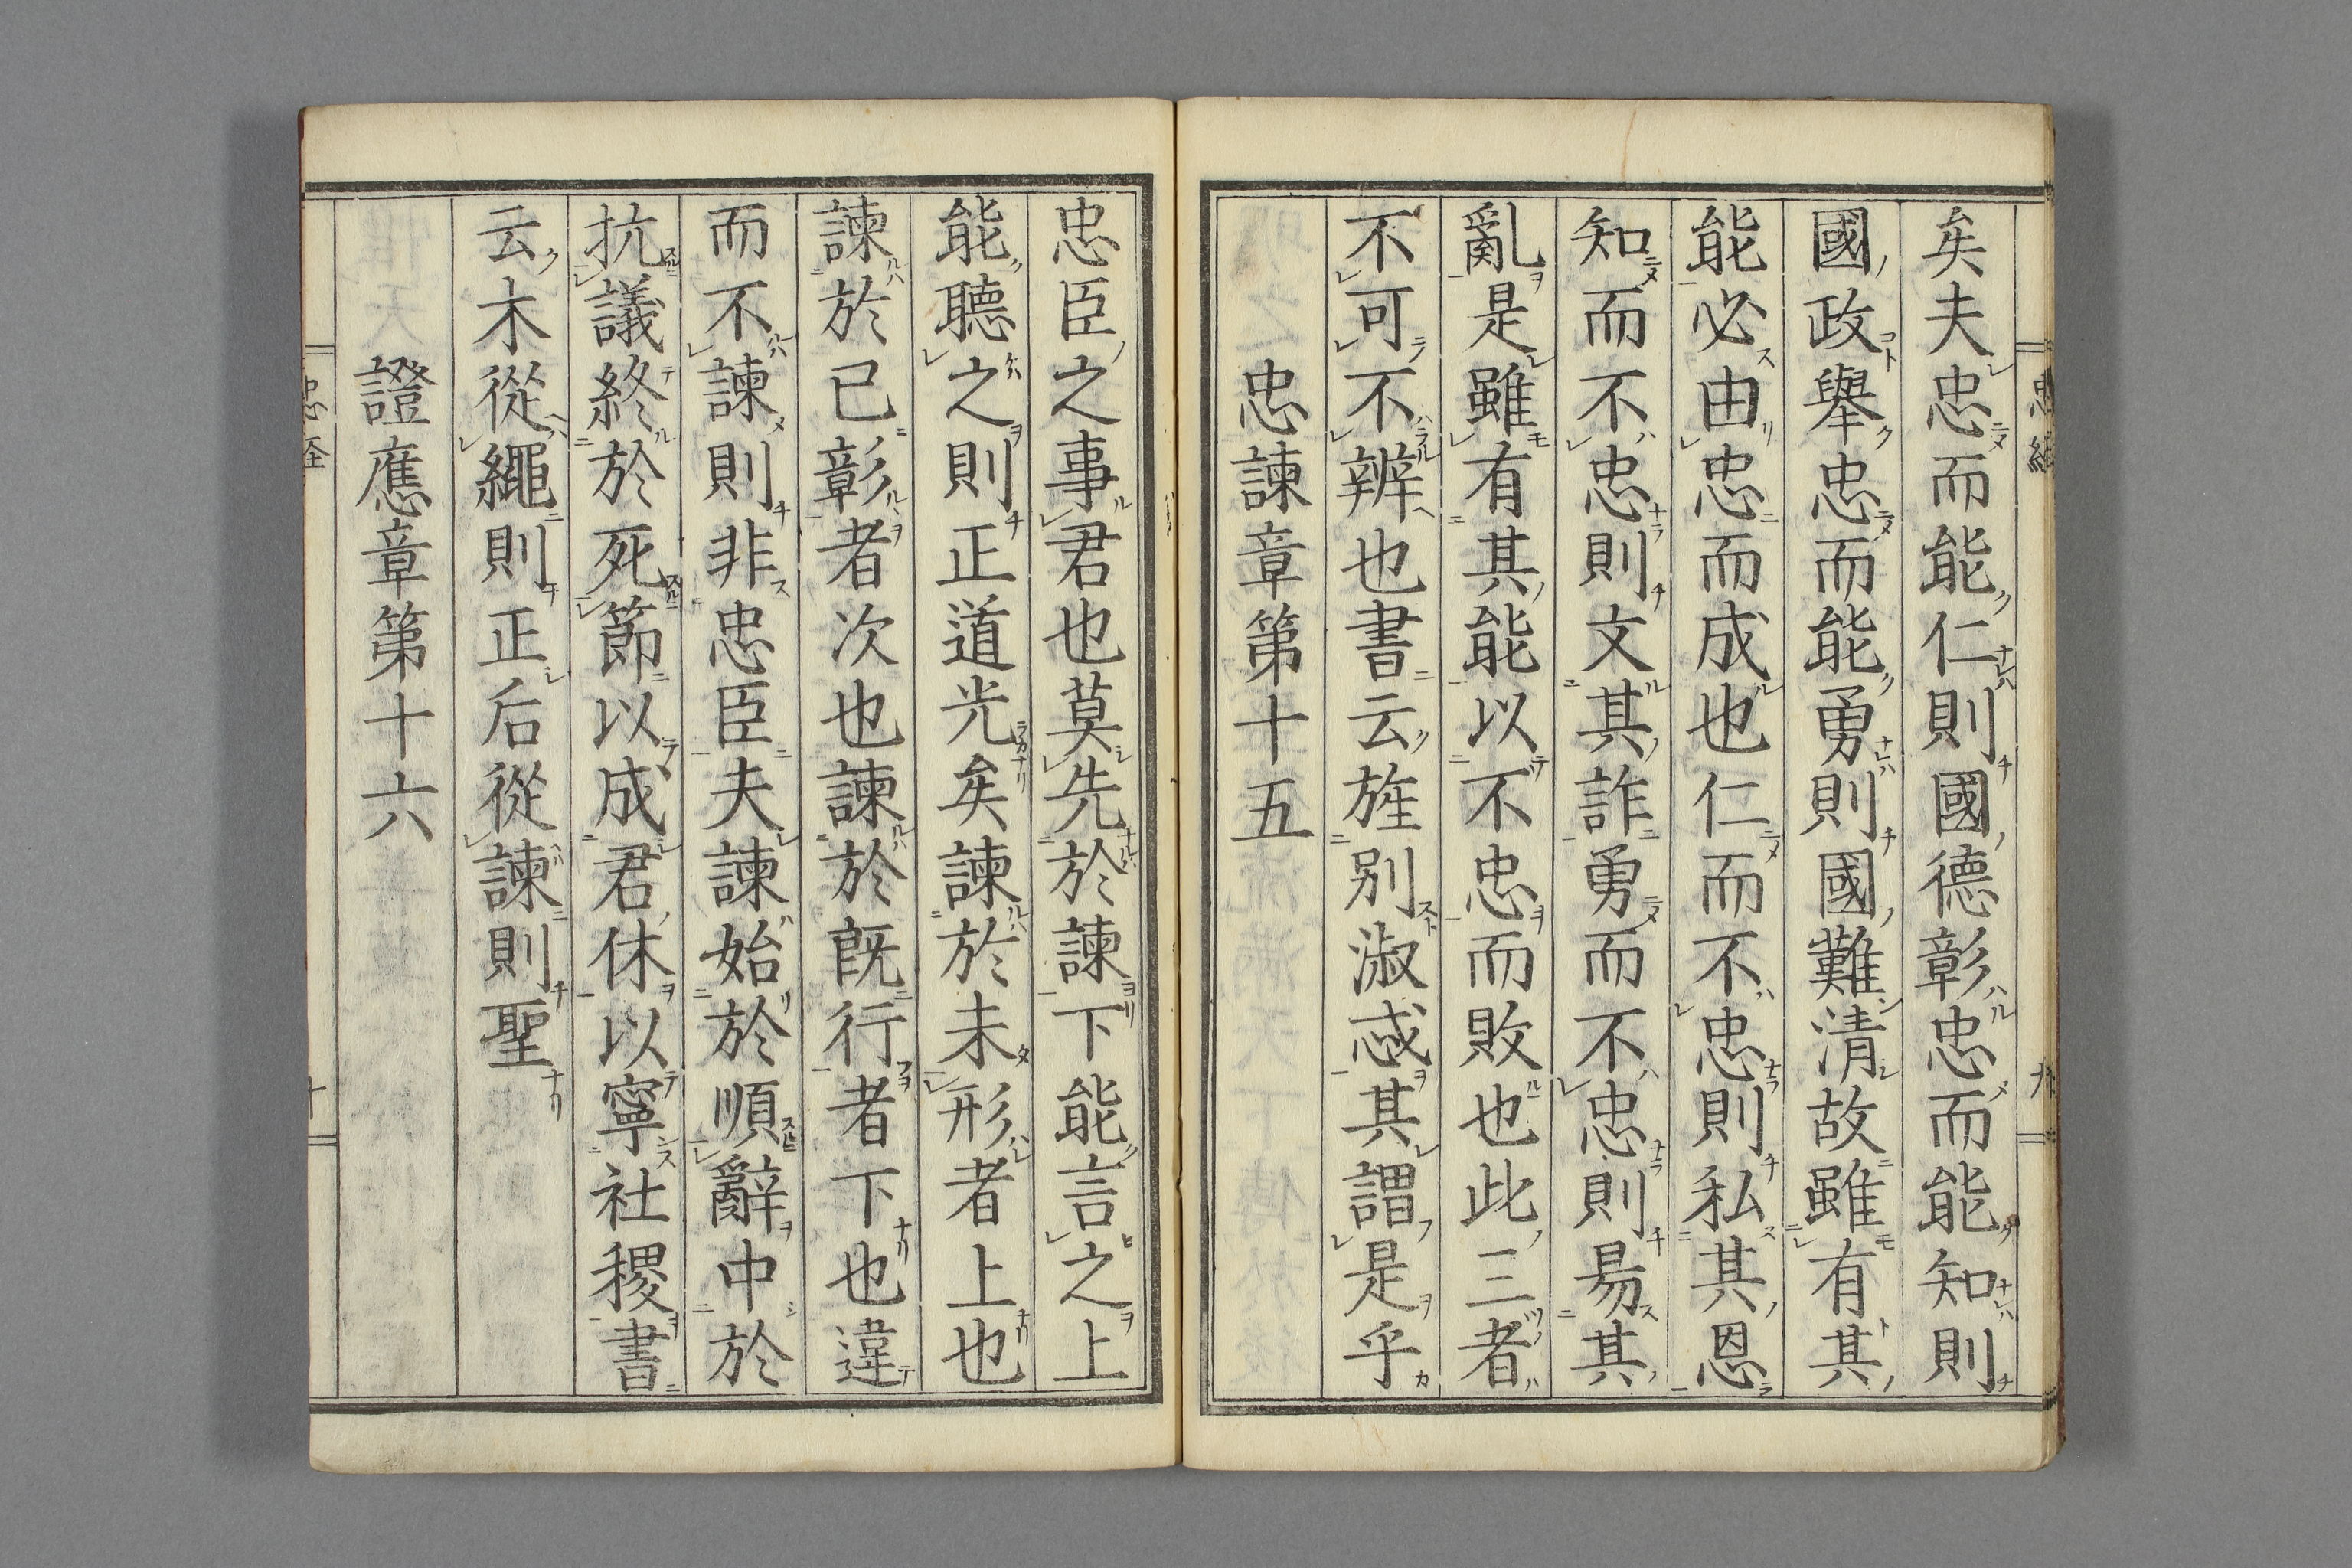 忠經
九
矣夫忠而能仁則國德彰忠而能知則
國政舉忠而能勇則國難清故雖有其
能必由忠而成也仁而不忠則私其恩
知而不忠則文其詐勇而不忠則昜其
亂是雖有其能以不忠而敗也此三者
不可不辨也書云旌別淑忒其謂是乎
忠諫章第十五
忠臣之事君也莫先於諫下能言之上
能聽之則正道光矣諫於未形者上也
諫於已彰者次也諫於既行者下也違
而不諫則非忠臣夫諫始於順辭中於
抗議終於死節以成君休以寧社稷書
云木從繩則正后從諫則聖
證應章第十六
忠經
十